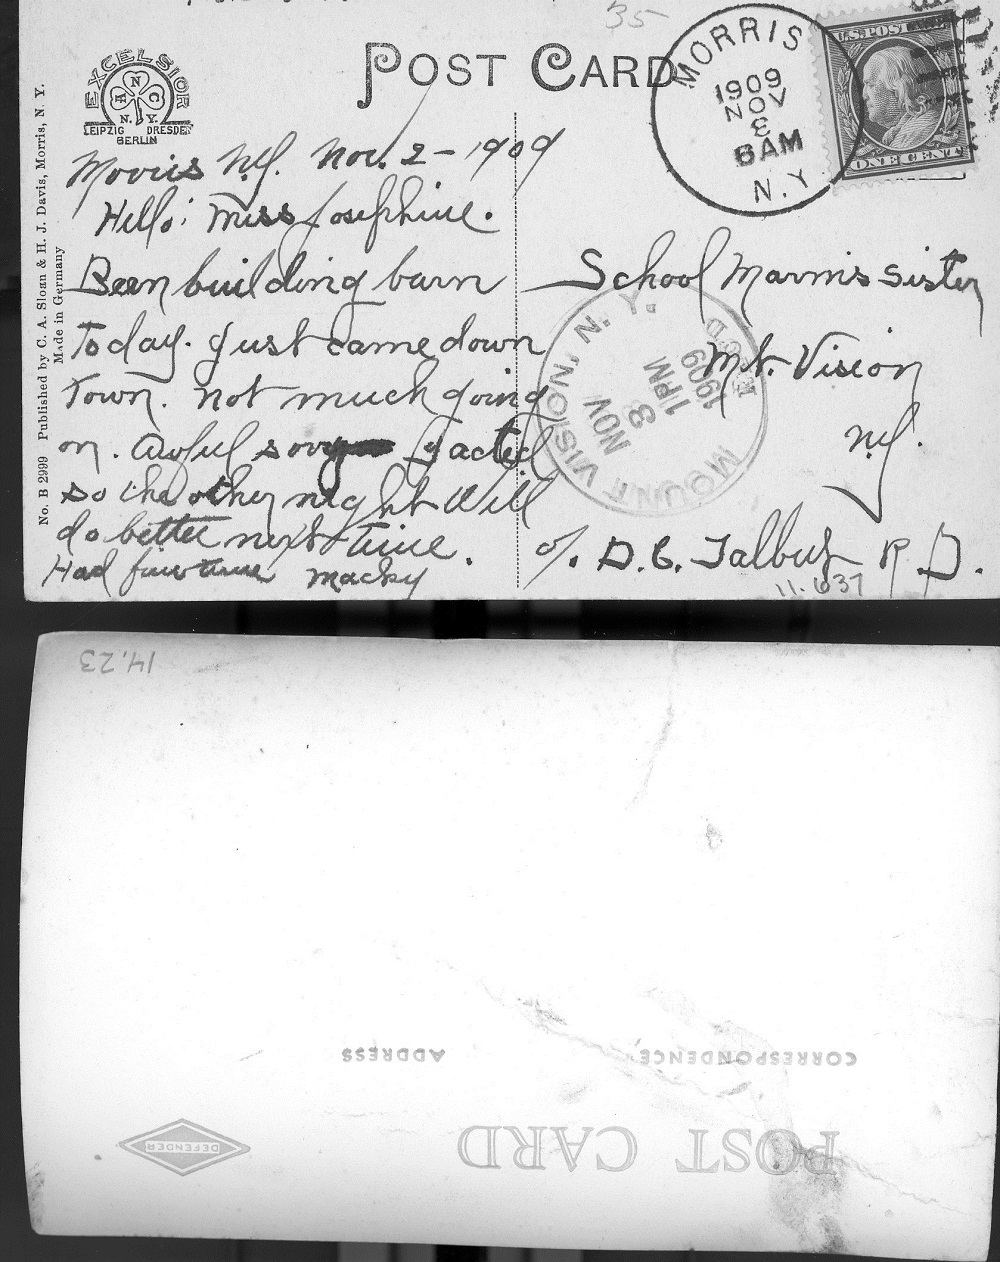 35
POST CARD
EXCELSIOR
A N C
N. Y.
LEIPZIG DRESDEN
BERLIN
No. B 2999 Published by C. A. Sloan & H. J. Davis, Morris, N. Y.
Made in Germany
MORRIS
1909
NOV
3
6 AM
N.Y.
U.S. POSTAGE
ONE CENT
Morris N.Y. Nov. 2 - 1909
Hello: Miss Josephine.
Been building barn
Today. Just came down
Town. Not much going
on. Awful sorry I acted
so the other night Will
do better next time.
Had fine time Macky
School Marm's sister
Mt. Vision
N.Y.
c/o. D. C. Talbut R. D.
MOUNT VISION, N. Y.
NOV
3
1 PM
1909
REC'D
11.637
14.23
ADDRESS
CORRESPONDENCE
DEFENDER
POST CARD